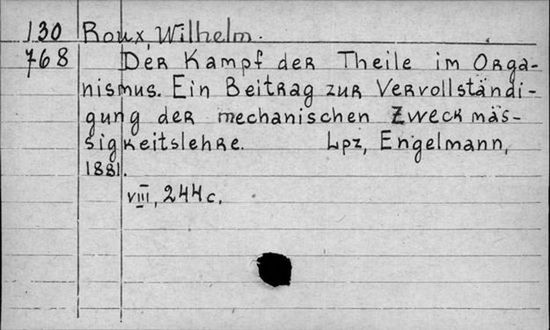 130 Roux, Wilhelm.
768 Der Kampf der Theile im Orga-
nismus. Ein Beitrag zur Vervollständi-
gung der mechanischen Zweckmäs-
sigkeitslehre. Lpz, Engelmann,
1881.
VIII, 244 c.